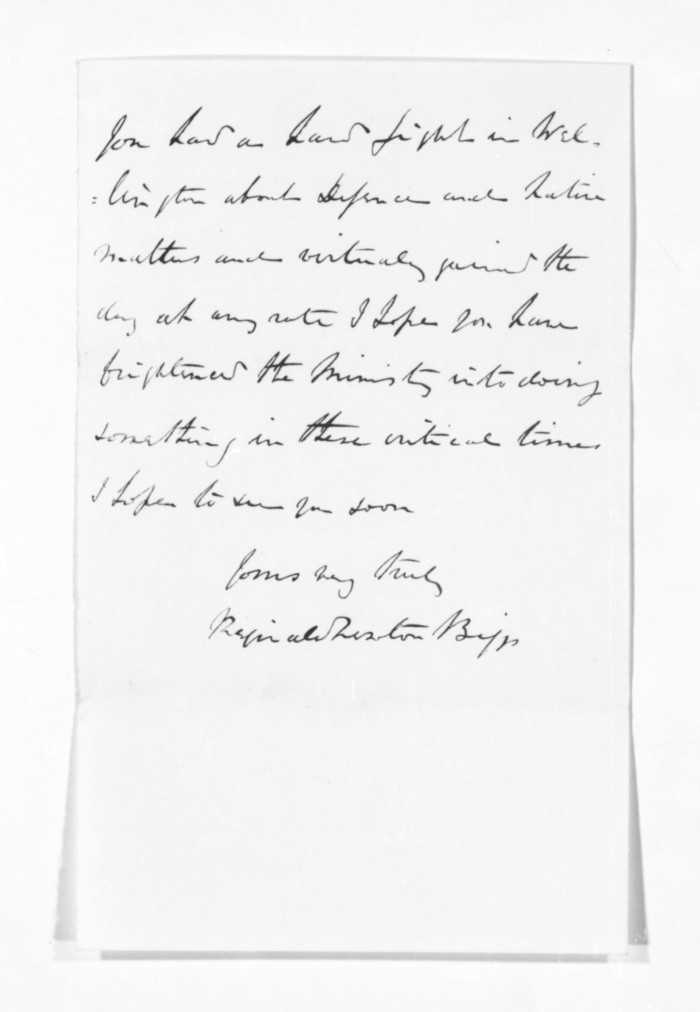 You had a hard fight in Wel-
=lington about Defence and Native
matters and virtually gained the
day at any rate I hope you have
frightened the Ministry into doing
something in these critical times
I hope to see you soon
Yours very truly
Reginald Newton Biggs